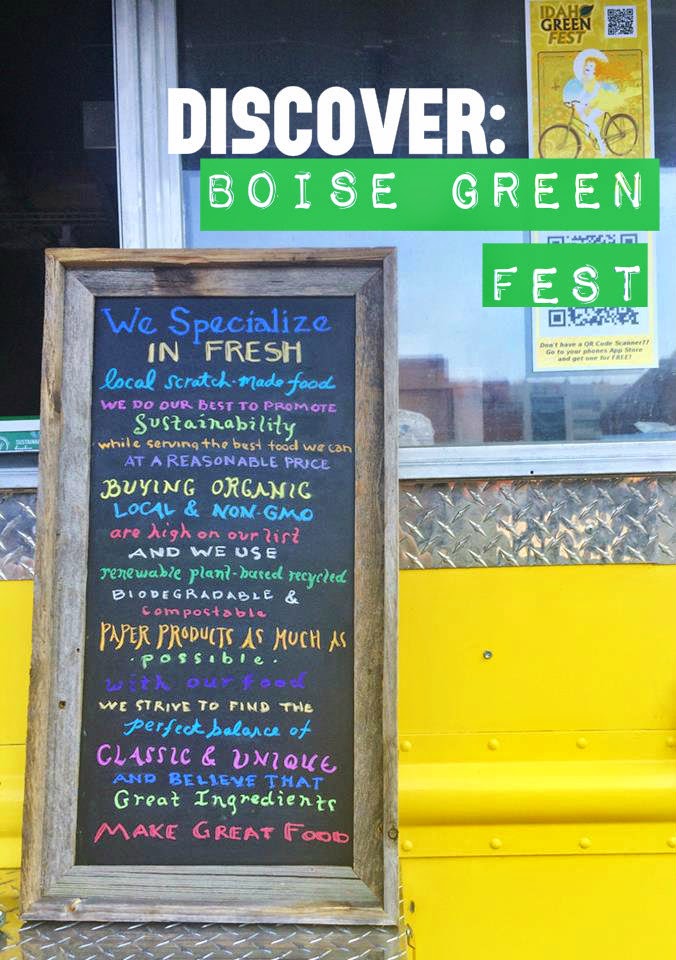 IDAHO
GREEN
FEST
DISCOVER:
BOISE GREEN
FEST
Don't have a QR Code Scanner??
Go to your phones App Store
and get one for FREE!
We Specialize
IN FRESH
local scratch-made food
WE DO OUR BEST TO PROMOTE
Sustainability
while serving the best food we can
AT A REASONABLE PRICE
BUYING ORGANIC
LOCAL & NON-GMO
are high on our list
AND WE USE
renewable plant-based recycled
BIODEGRADABLE &
compostable
PAPER PRODUCTS AS MUCH AS
• possible •
with our food
WE STRIVE TO FIND THE
perfect balance of
CLASSIC & UNIQUE
AND BELIEVE THAT
Great Ingredients
MAKE GREAT FOOD